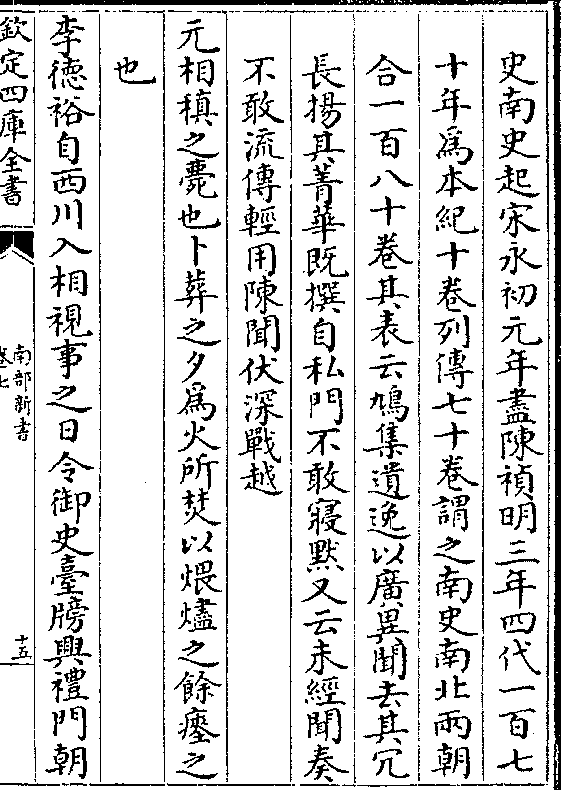 史南史起宋永初元年盡陳禎明三年四代一百七
十年為本紀十卷列傳七十卷謂之南史南北兩朝
合一百八十卷其表云鳩集遺逸以廣異聞去其冗
長揚其菁華既撰自私門不敢寢默又云未經聞奏
不敢流傳輕用陳聞伏深戰越
元相稹之薨也卜葬之夕為火所焚以煨燼之餘瘞之
也
李德裕自西川入相視事之日令御史臺牓興禮門朝
欽定四庫全書
南部新書
卷七
十五